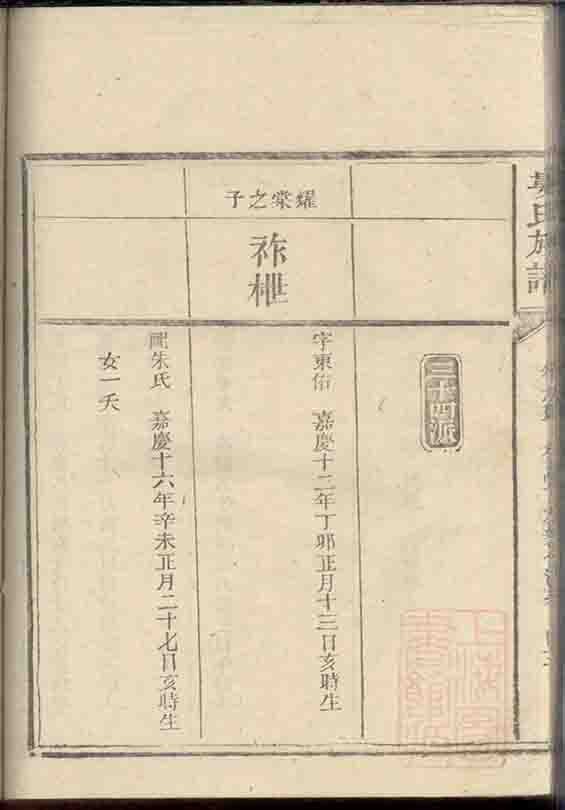 氏族譜
三十四派
耀棠之子
祚枻
字東佑 嘉慶十二年丁卯正月十三日亥時生
配朱氏 嘉慶十六年辛未正月二十七日亥時生
女一夭